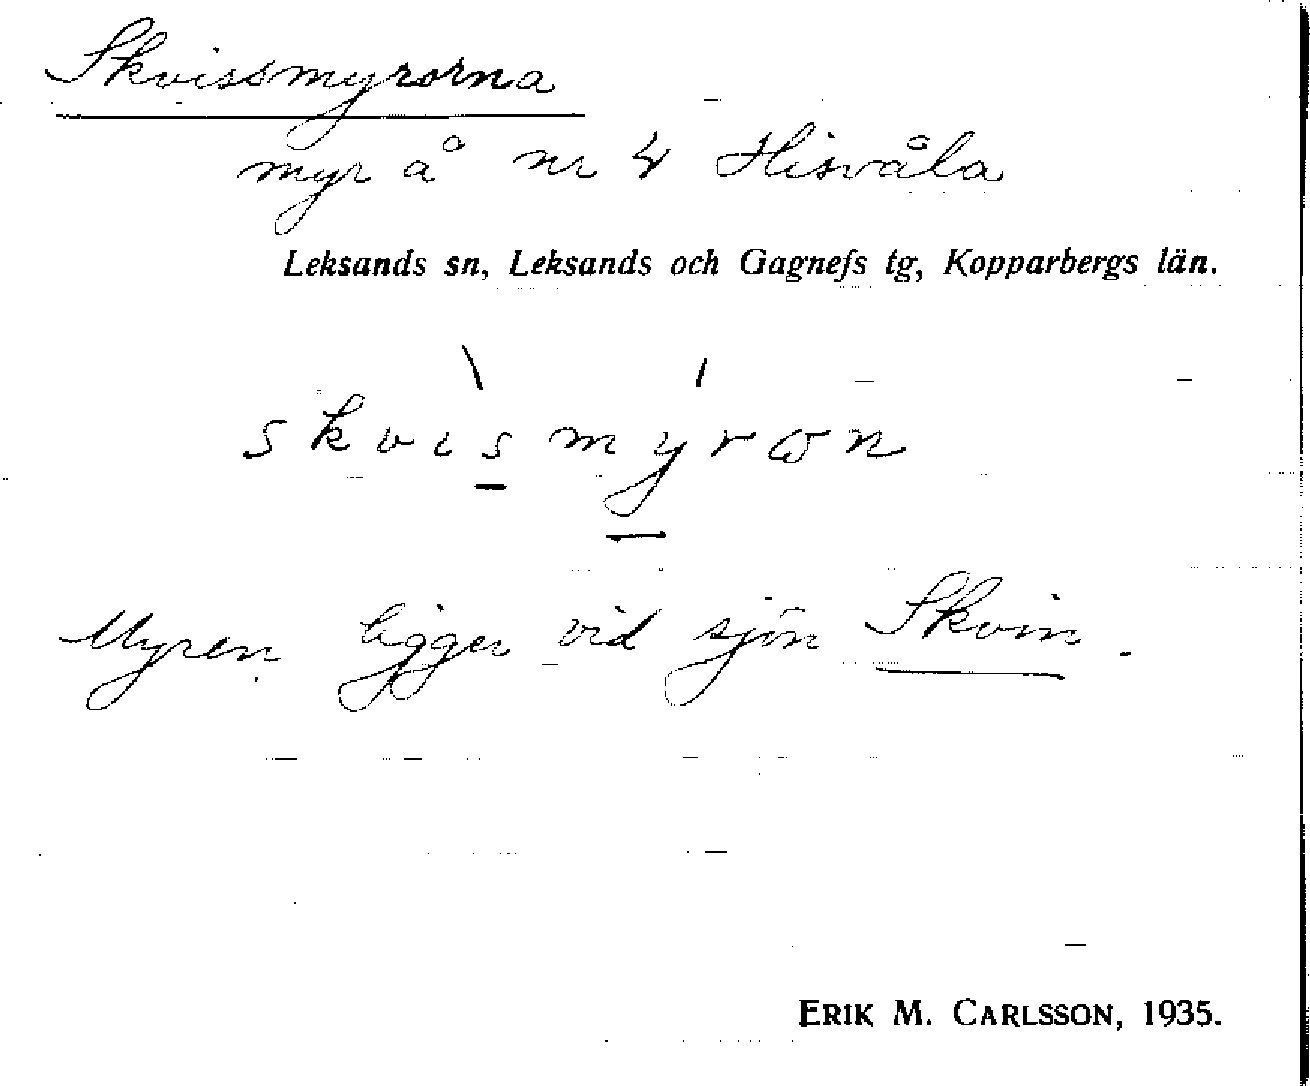 Skvissmyrorna
myr å nr 4 Hisvåla
Leksands sn, Leksands och Gagnefs tg, Kopparbergs län.
skvismyrωn
Myren ligger vid sjön Skvin.
ERIK M. CARLSSON, 1935.